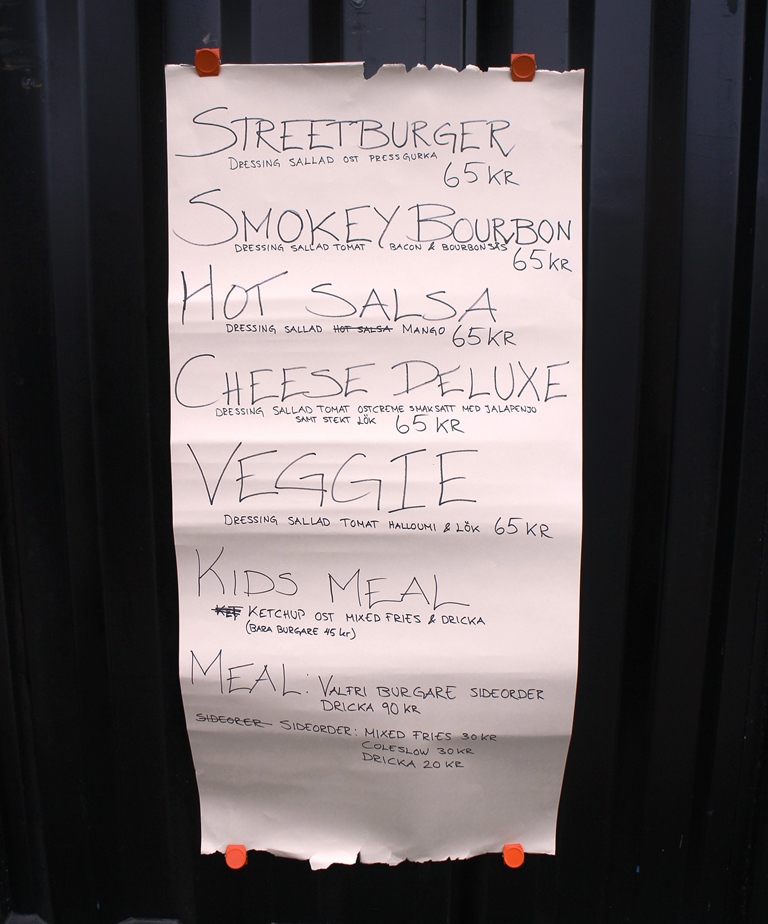 STREETBURGER
DRESSING SALLAD OST PRESSGURKA
65 KR
SMOKEY BOURBON
DRESSING SALLAD TOMAT BACON & BOURBONSÅS
65 KR
HOT SALSA
DRESSING SALLAD HOT SALSA MANGO 65 KR
CHEESE DELUXE
DRESSING SALLAD TOMAT OSTCREME SMAKSATT MED JALAPENJO
SAMT STEKT LÖK 65 KR
VEGGIE
DRESSING SALLAD TOMAT HALLOUMI & LÖK 65 KR
KIDS MEAL
KETCHUP OST MIXED FRIES & DRICKA
(BARA BURGARE 45 kr)
MEAL: VALFRI BURGARE SIDEORDER
DRICKA 90 KR
SIDEORER SIDEORDER: MIXED FRIES 30 KR
COLESLOW 30 KR
DRICKA 20 KR